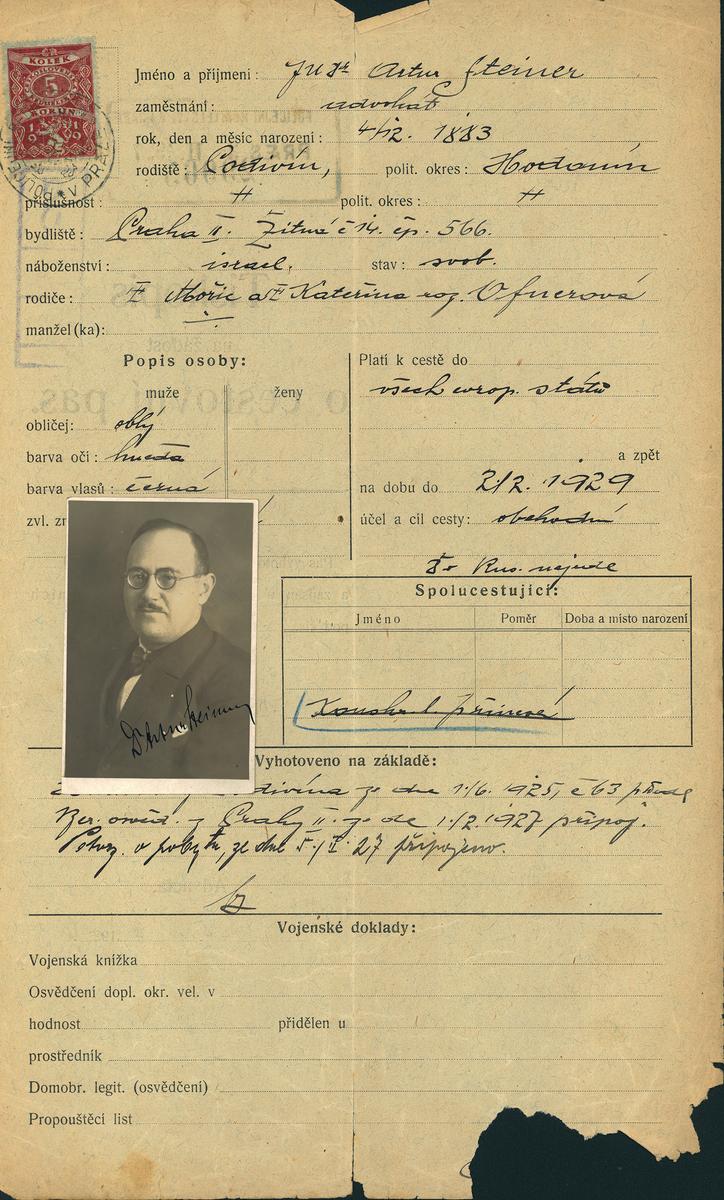 KOLEK
5
KORUN
1919
V PRAZE
Jméno a příjmení: JUDr Artur Steiner
zaměstnání: advokát
rok, den a měsíc narození: 4/12. 1883
rodiště: Hodonín
polit. okres: Hodonín
příslušnost: "
polit. okres: "
bydliště: Praha II. Žitná č 14. čp. 566.
náboženství: israel.
stav: svob.
rodiče: Mořic a Kateřina roz. Ofnerová
manžel (ka):
Popis osoby:
muže
ženy
obličej: oblý
barva očí: hnědá
barva vlasů: černá
zvl.
Platí k cestě do
všech evrop. států
a zpět
na dobu do 2/2. 1929
účel a cíl cesty: obchodní
Rus. nejede
Spolucestující:
Jméno
Poměr
Doba a místo narození
Dr Artur Steiner
Vyhotoveno na základě:
ze dne 1./6. 1925, č 63 předl
z Prahy II. ze dne 1./2. 1927 připoj.
Potvrz. o pobytu, ze dne 27 připojeno.
Vojenské doklady:
Vojenská knížka
Osvědčení dopl. okr. vel. v
hodnost
přidělen u
prostředník
Domobr. legit. (osvědčení)
Propouštěcí list